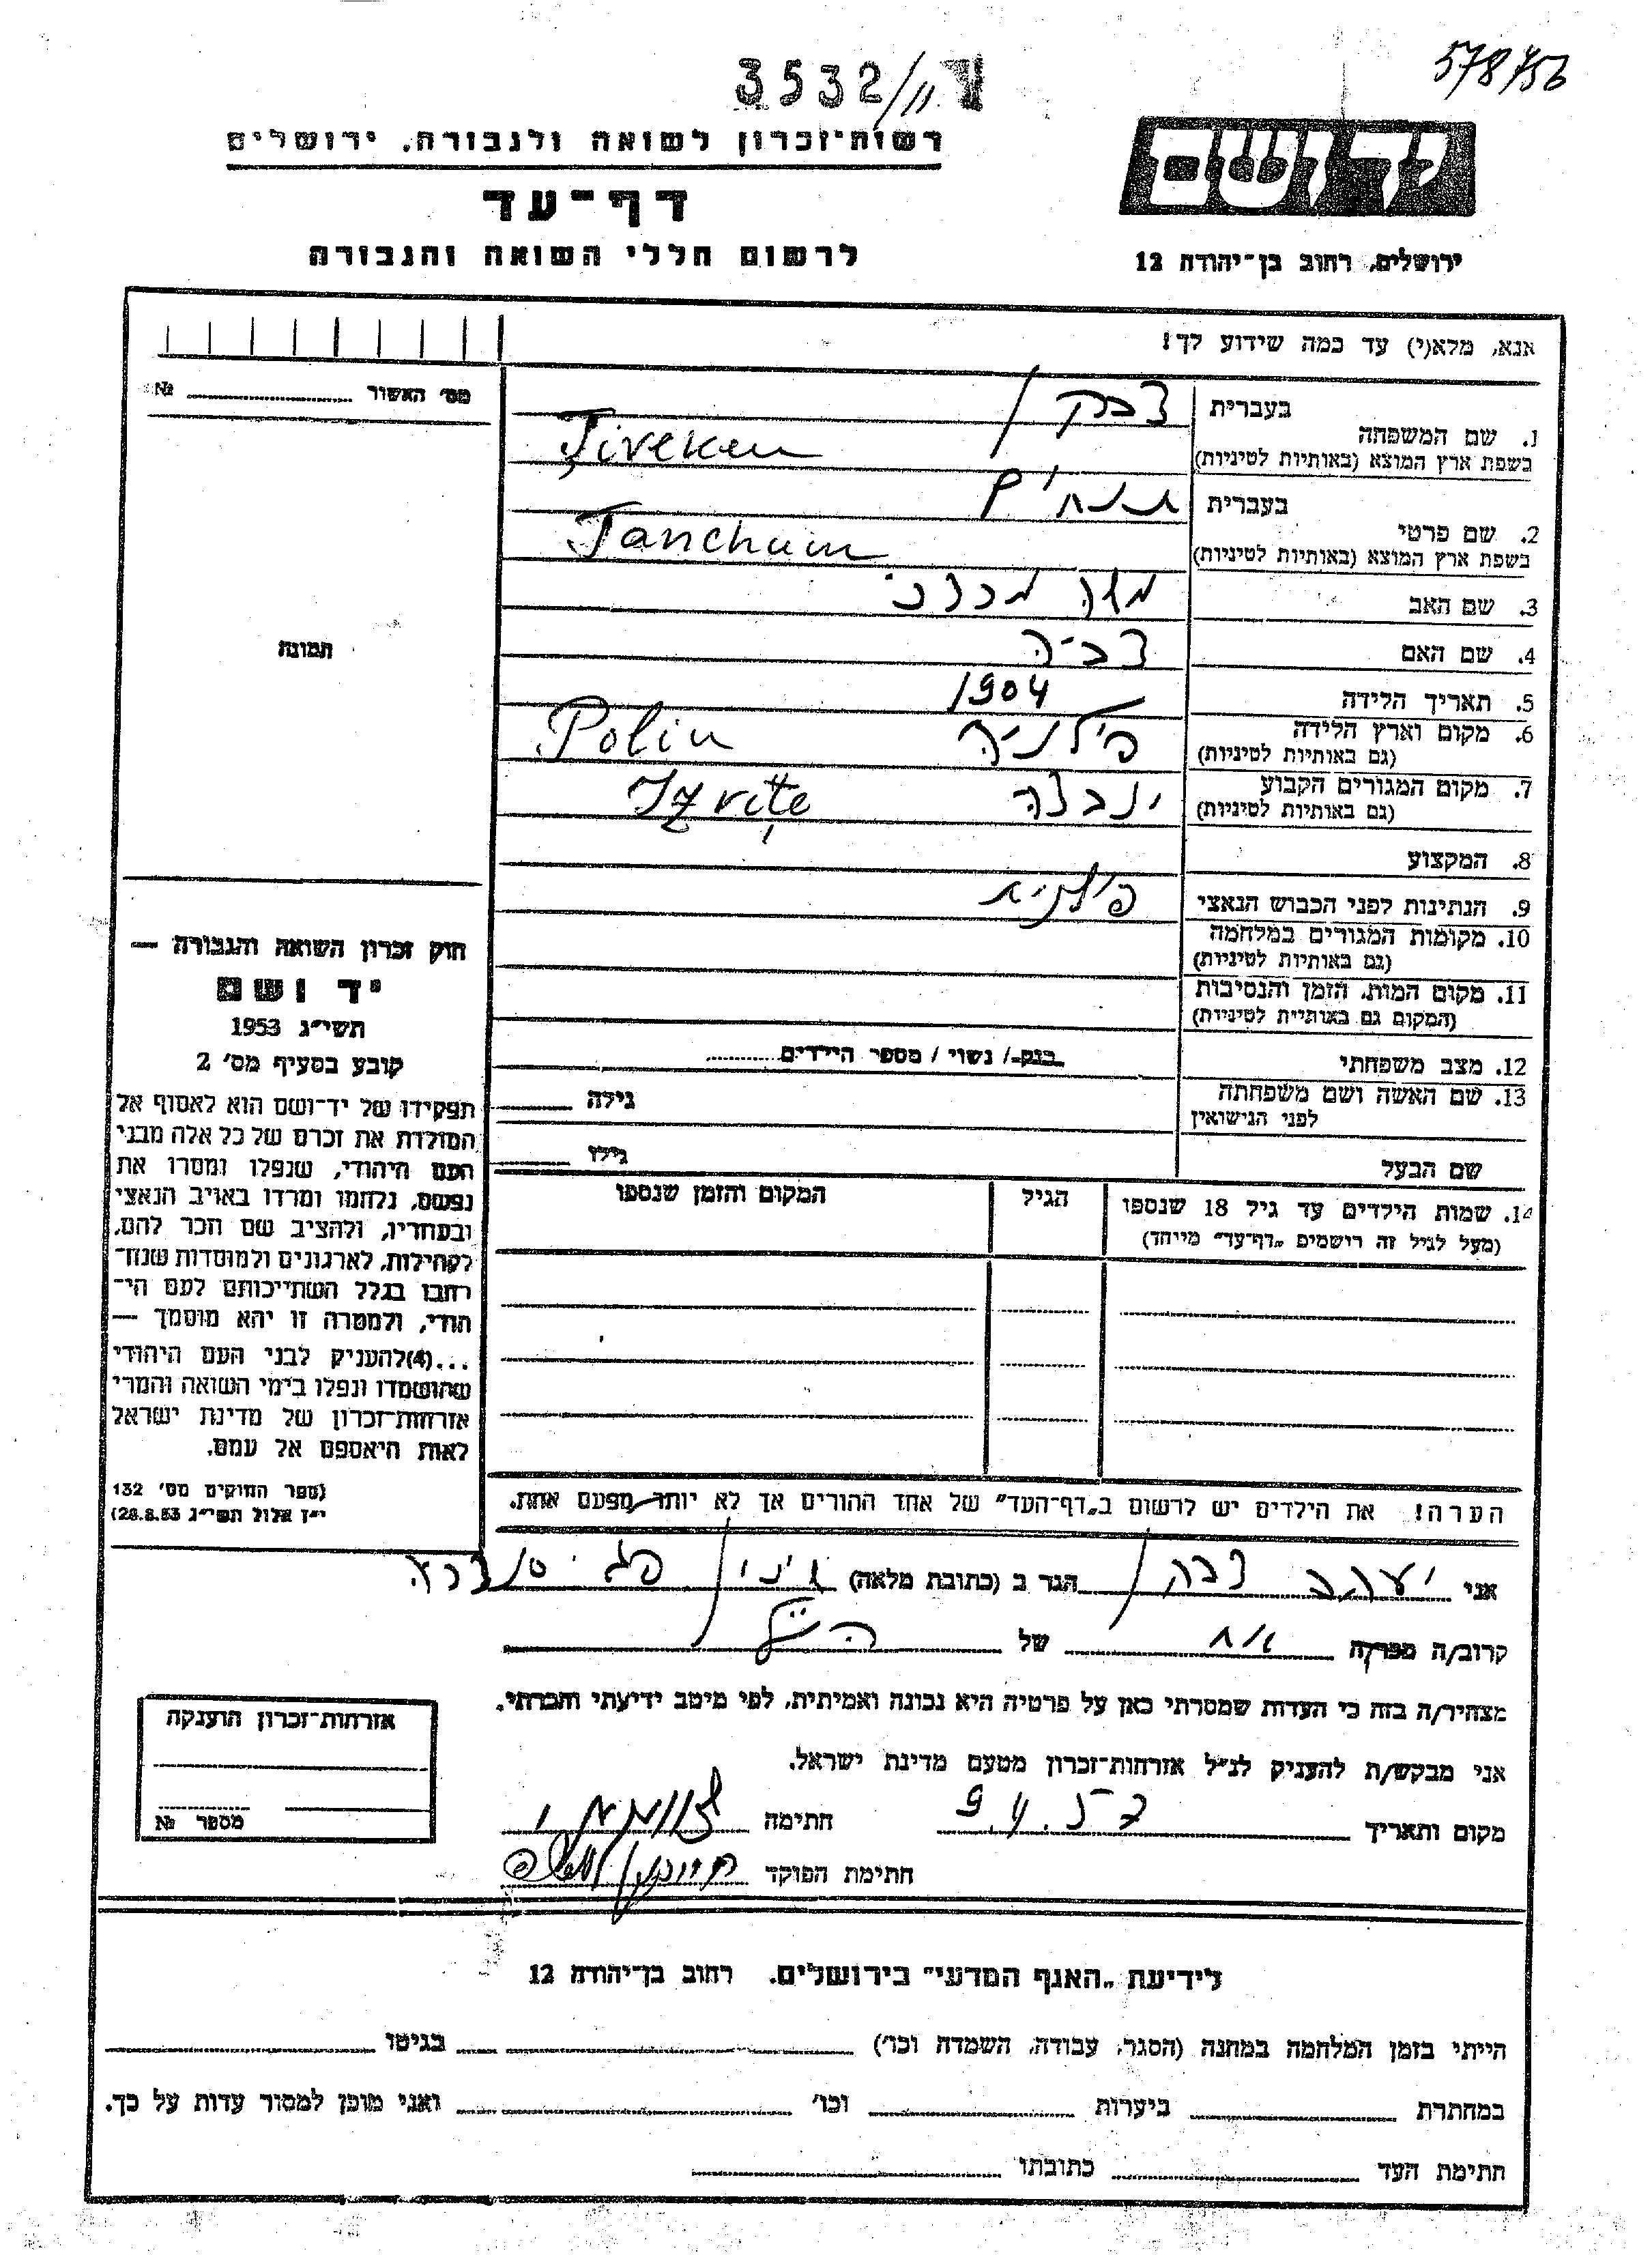 578/56
3532/11
רשות־זכרון לשואה ולגבורה, ירושלים
יד ושם
דף־עד
לרשום חללי השואה והגבורה
ירושלים, רחוב בן־יהודה 12
אנא, מלא(י) עד כמה שידוע לך!
מס׳ האשור № 
בעברית
1. שם המשפחה
בשפת ארץ המוצא (באותיות לטיניות) Ţiveken
בעברית תנחום
2. שם פרטי
בשפת ארץ המוצא (באותיות לטיניות) Tanchum
3. שם האב משה מרדכי
4. שם האם צביה
5. תאריך הלידה 1904
6. מקום וארץ הלידה פולניה Polin
(גם באותיות לטיניות)
7. מקום המגורים הקבוע Izviţe
(גם באותיות לטיניות)
8. המקצוע
9. הנתינות לפני הכבוש הנאצי פולנית
10. מקומות המגורים במלחמה
(גם באותיות לטיניות)
11. מקום המות, הזמן והנסיבות
(המקום גם באותיות לטיניות)
12. מצב משפחתי רווק / נשוי / מספר הילדים
13. שם האשה ושם משפחתה גילה
לפני הנישואין
שם הבעל גילו
14. שמות הילדים עד גיל 18 שנספו הגיל המקום והזמן שנספו
(מעל לגיל זה רושמים „דף־עד״ מייחד)
הערה! את הילדים יש לרשום ב„דף־העד״ של אחד ההורים אך לא יותר מפעם אחת.
תמונה
חוק זכרון השואה והגבורה —
יד ושם
תשי״ג 1953
קובע בסעיף מס׳ 2
תפקידו של יד־ושם הוא לאסוף אל
המולדת את זכרם של כל אלה מבני
העם היהודי, שנפלו ומסרו את
נפשם, נלחמו ומרדו באויב הנאצי
ובעוזריו, ולהציב שם וזכר להם,
לקהילות, לארגונים ולמוסדות שנח־
רבו בגלל השתייכותם לעם הי־
הודי, ולמטרה זו יהא מוסמך —
...(4)להעניק לבני העם היהודי
שהושמדו ונפלו בימי השואה והמרי
אזרחות־זכרון של מדינת ישראל
לאות היאספם אל עמם.
(ספר החוקים מס׳ 132
י״ז אלול תשי״ג 28.8.53)
אני יעקב הגר ב (כתובת מלאה)
קרוב/ה מפרקה אח של הנ״ל
מצהיר/ה בזה כי העדות שמסרתי כאן על פרטיה היא נכונה ואמיתית, לפי מיטב ידיעתי והכרתי.
אני מבקש/ת להעניק לנ״ל אזרחות־זכרון מטעם מדינת ישראל.
מקום ותאריך חתימה
חתימת הפוקד
אזרחות־זכרון הוענקה
מספר №
לידיעת „האגף המדעי״ בירושלים, רחוב בן־יהודה 12
הייתי בזמן המלחמה במחנה (הסגר, עבודה, השמדה וכו׳) בגיטו
במחתרת ביערות וכו׳ ואני מוכן למסור עדות על כך.
חתימת העד כתובתו